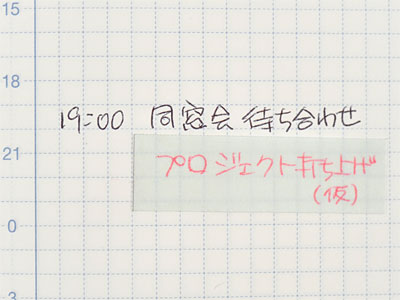 15
18
19:00 同窓会 待ち合わせ
21
プロジェクト打ち上げ
(仮)
0
3